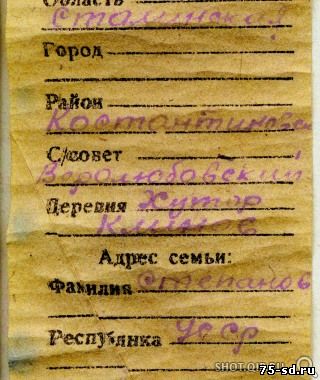 Область
Сталинский
Город
Район
Костантиновс
С/совет
Веролюбовский
Деревня Хутор
Клинов
Адрес семьи:
Фамилия Степанов
Республика УССР
75-sd.ru